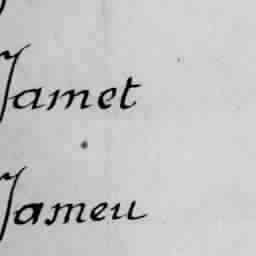 Jamet
Jameu